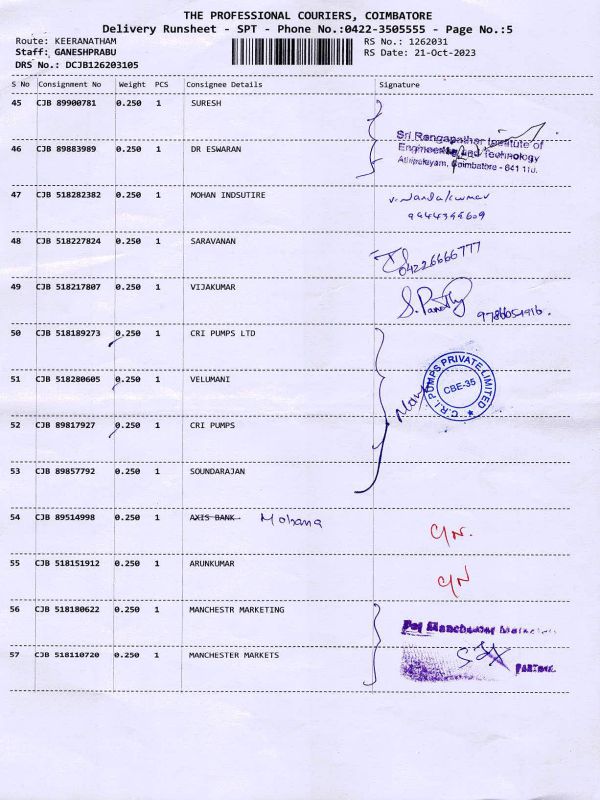 THE PROFESSIONAL COURIERS, COIMBATORE
Delivery Runsheet - SPT - Phone No.:0422-3505555 - Page No.:5
Route: KEERANATHAM RS No.: 1262031
Staff: GANESHPRABU RS Date: 21-Oct-2023
DRS No.: DCJB126203105
S No Consignment No Weight PCS Consignee Details Signature
45 CJB 89900781 0.250 1 SURESH
Sri Ranganathar Institute of
46 CJB 89883989 0.250 1 DR ESWARAN Engineering and Technology
Athipalayam, Coimbatore - 641 110.
47 CJB 518282382 0.250 1 MOHAN INDSUTIRE V. Nandakumar
9944344609
48 CJB 518227824 0.250 1 SARAVANAN 04226666777
49 CJB 518217807 0.250 1 VIJAKUMAR
50 CJB 518189273 0.250 1 CRI PUMPS LTD
51 CJB 518280605 0.250 1 VELUMANI C.R.I. PUMPS PRIVATE LIMITED CBE-35
52 CJB 89817927 0.250 1 CRI PUMPS
53 CJB 89857792 0.250 1 SOUNDARAJAN
54 CJB 89514998 0.250 1 AXIS BANK Mohana C/N.
55 CJB 518151912 0.250 1 ARUNKUMAR C/N
56 CJB 518180622 0.250 1 MANCHESTR MARKETING For Manchester
57 CJB 518110720 0.250 1 MANCHESTER MARKETS PARTNER